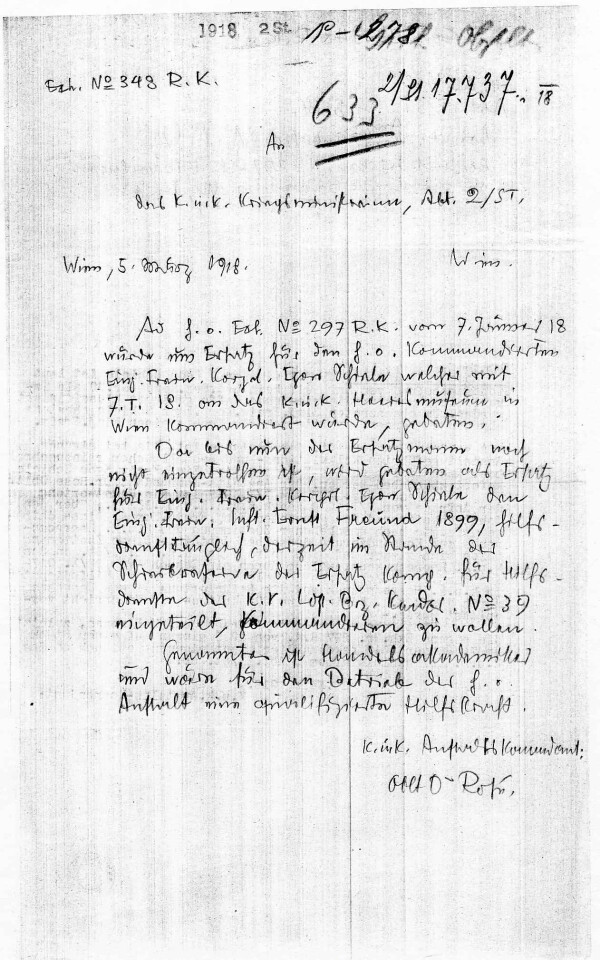 1918 2St.
Exh. № 348 R. K.
2/St. 17.737. /18
633
An
das K.u.K. Kriegsministerium, Abt. 2/ST.
Wien, 5. März 1918. Wien.
Ad h. o. Exh. № 297 R. K. vom 7. Jänner 18
wurde um Ersatz für den h. o. Kommandierten
Einj. Freiw. Korpl. Egon Schiele welcher mit
7. I. 18. an das K.u.K. Heeresmuseum in
Wien kommandiert wurde, gebeten.
Da bis nun der Ersatzmann noch
nicht eingetroffen ist, wird gebeten als Ersatz
für Einj. Freiw. Korpl. Egon Schiele den
Einj. Freiw. Inft. Ernst Freund 1899, hilfs-
diensttauglich, derzeit im Stande der
der Ersatz Komp. für Hilfs-
dienste des K. K. Bez. Kmdos. № 39
eingeteilt, kommandieren zu wollen.
Genannter ist Handelsakademiker
und wäre für den Betrieb der h. o.
Anstalt eine qualifizierte Hilfskraft.
K.u.K. Anstaltskommandant:
Oblt